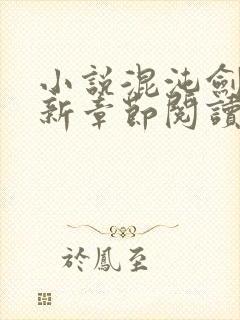 小說混沌劍
新章節閱讀
於鳳至